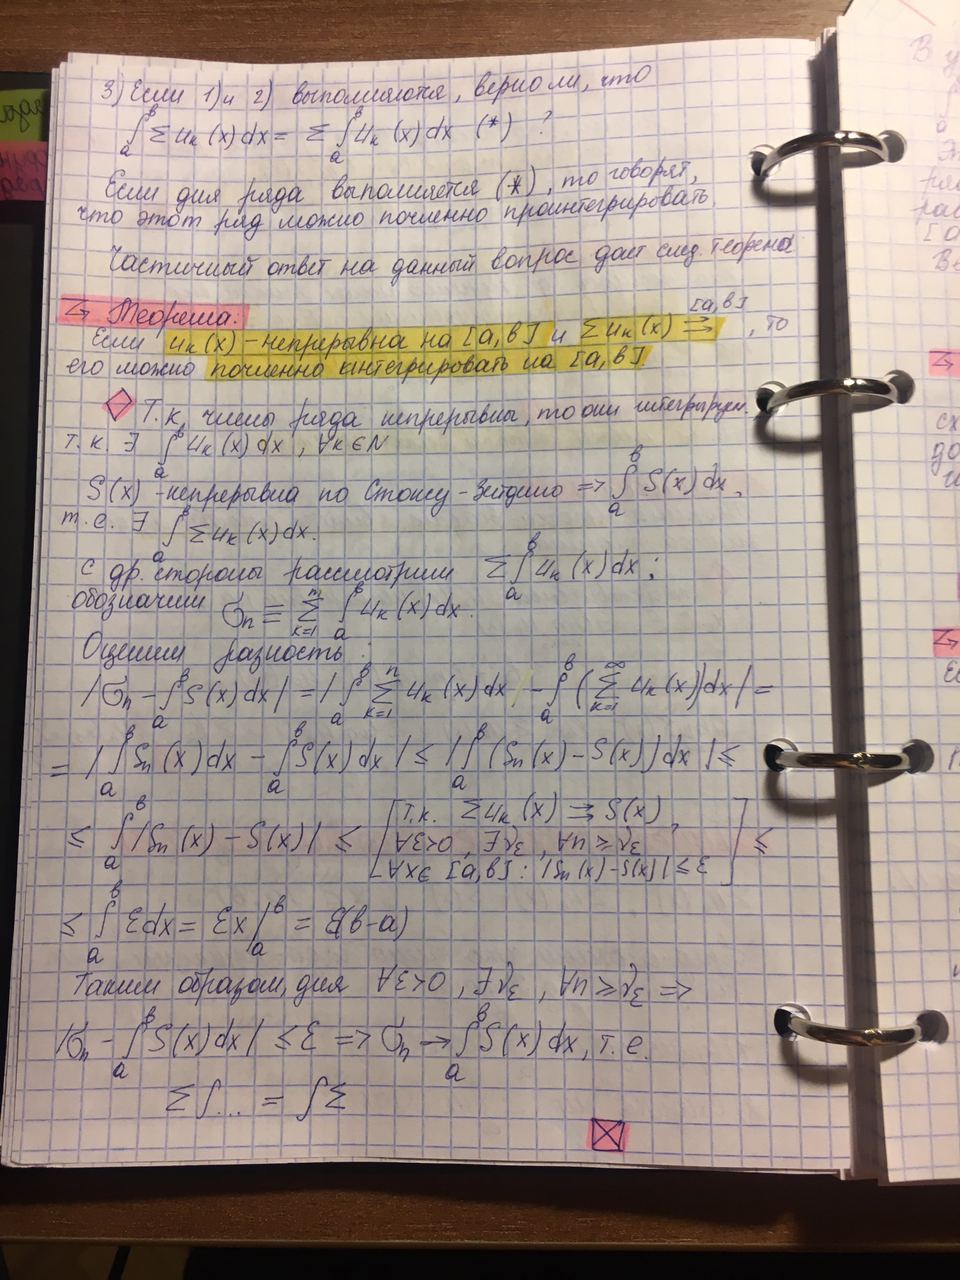 3) Если 1) и 2) выполняются, верно ли, что
∫ₐᵇ Σ uₖ(x)dx = Σ ∫ₐᵇ uₖ(x)dx (*) ?
Если для ряда выполняется (*), то говорят,
что этот ряд можно почленно проинтегрировать.
Частичный ответ на данный вопрос дает след. теорема
Теорема:
Если uₖ(x) - непрерывна на [a,b] и Σ uₖ(x) ⇉ [a,b], то
его можно почленно интегрировать на [a,b].
Т.к. члены ряда непрерывны, то они интегрируем.
т.к. ∃ ∫ₐᵇ uₖ(x)dx, ∀k∈N
S(x) - непрерывна по Стоксу-Зейделю => ∫ₐᵇ S(x)dx,
т.е. ∃ ∫ₐᵇ Σuₖ(x)dx.
С др. стороны рассмотрим Σ ∫ₐᵇ uₖ(x)dx;
обозначим σₙ ≡ Σₖ₌₁ᵐ ∫ₐᵇ uₖ(x)dx.
Оценим разность:
|σₙ - ∫ₐᵇ S(x)dx| = |∫ₐᵇ Σₖ₌₁ⁿ uₖ(x)dx - ∫ₐᵇ (Σₖ₌₁^∞ uₖ(x))dx| =
= |∫ₐᵇ Sₙ(x)dx - ∫ₐᵇ S(x)dx| ≤ |∫ₐᵇ (Sₙ(x) - S(x))dx| ≤
≤ ∫ₐᵇ |Sₙ(x) - S(x)| ≤ [т.к. Σuₖ(x) ⇉ S(x),
∀ε>0, ∃γε, ∀n≥γε
∀x∈[a,b]: |Sₙ(x)-S(x)|≤ε] ≤
≤ ∫ₐᵇ εdx = εx|ₐᵇ = ε(b-a)
Таким образом, для ∀ε>0, ∃γε, ∀n≥γε =>
|σₙ - ∫ₐᵇ S(x)dx| ≤ ε => σₙ → ∫ₐᵇ S(x)dx, т.е.
Σ∫... = ∫Σ